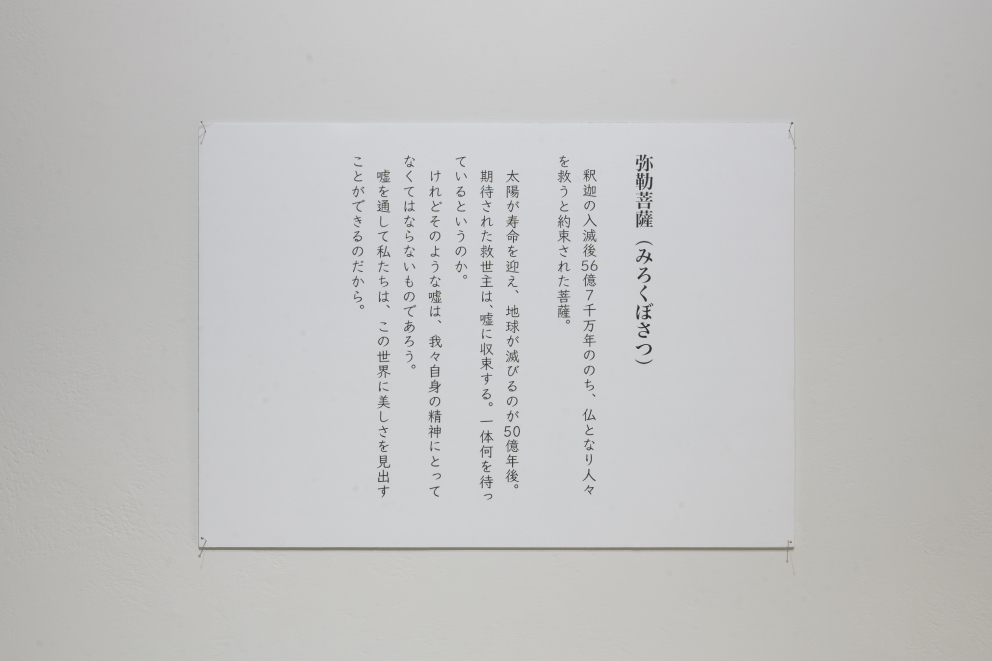 弥勒菩薩（みろくぼさつ）
釈迦の入滅後56億7千万年ののち、仏となり人々
を救うと約束された菩薩。
太陽が寿命を迎え、地球が滅びるのが50億年後。
期待された救世主は、嘘に収束する。一体何を待っ
ているというのか。
けれどそのような嘘は、我々自身の精神にとって
なくてはならないものであろう。
嘘を通して私たちは、この世界に美しさを見出す
ことができるのだから。